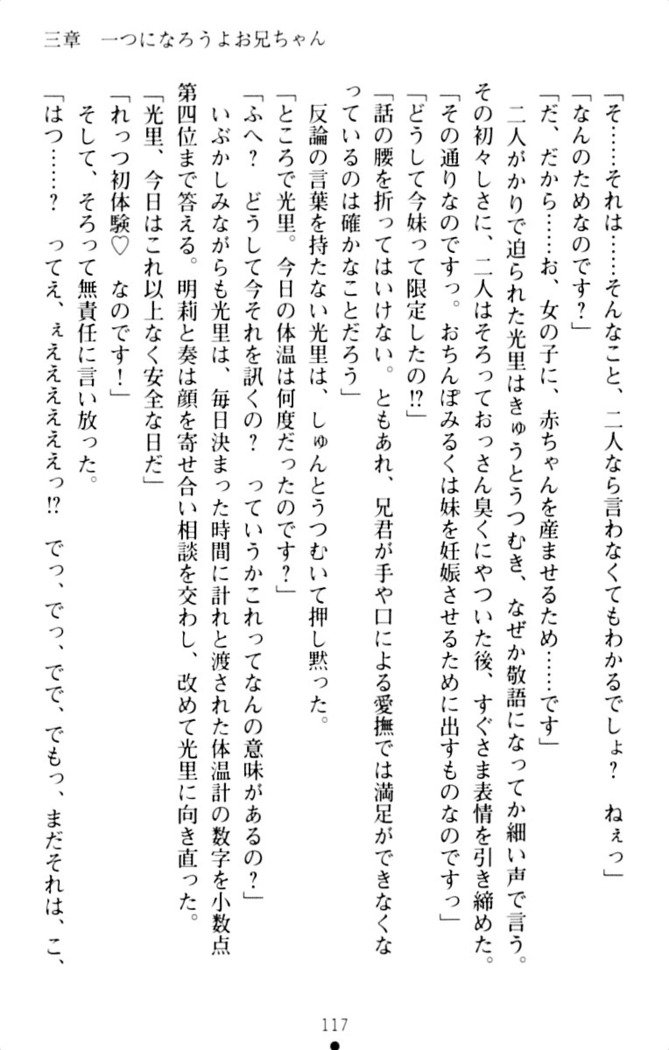 三章　一つになろうよお兄ちゃん
「そ……それは……そんなこと、二人なら言わなくてもわかるでしょ？　ねぇっ」
「なんのためなのです？」
「だ、だから……お、女の子に、赤ちゃんを産ませるため……です」
　二人がかりで迫られた光里はきゅうとうつむき、なぜか敬語になってか細い声で言う。
その初々しさに、二人はそろっておっさん臭くにやついた後、すぐさま表情を引き締めた。
「その通りなのですっ。おちんぽみるくは妹を妊娠させるために出すものなのですっ」
「どうして今妹って限定したの!?」
「話の腰を折ってはいけない。ともあれ、兄君が手や口による愛撫では満足ができなくな
っているのは確かなことだろう」
　反論の言葉を持たない光里は、しゅんとうつむいて押し黙った。
「ところで光里。今日の体温は何度だったのです？」
「ふへ？　どうして今それを訊くの？　っていうかこれってなんの意味があるの？」
　いぶかしみながらも光里は、毎日決まった時間に計れと渡された体温計の数字を小数点
第四位まで答える。明莉と奏は顔を寄せ合い相談を交わし、改めて光里に向き直った。
「光里、今日はこれ以上なく安全な日だ」
「れっつ初体験♡　なのです！」
　そして、そろって無責任に言い放った。
「はつ……？　ってえ、ぇえええええっ!?　でっ、でっ、でで、でもっ、まだそれは、こ、
117